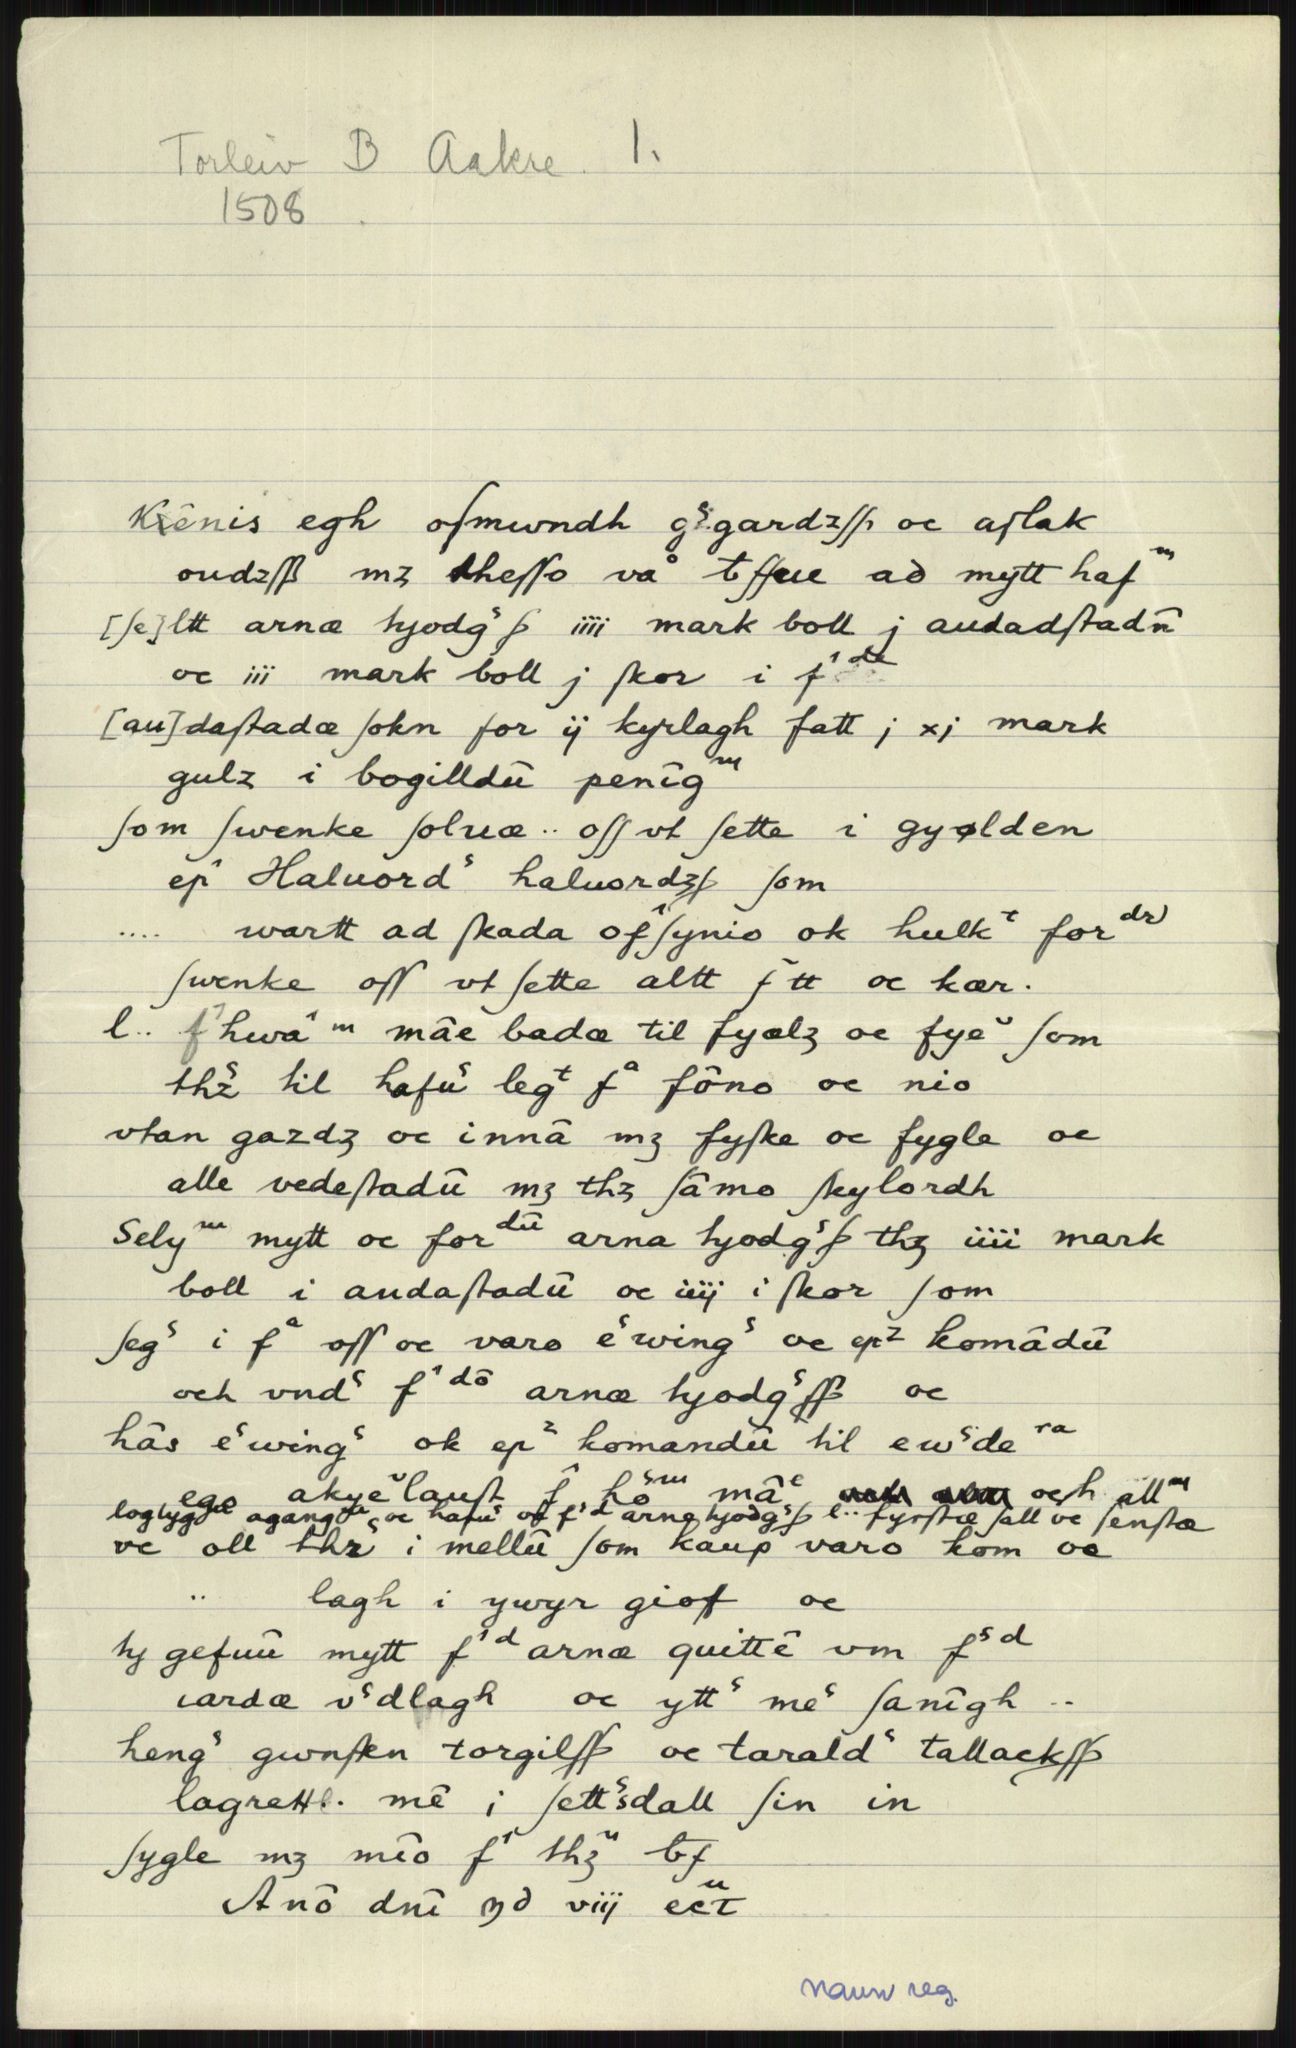 Torleiv B Aakre. 1.
1508.
Kēnis egh osmwndh gˢgardzſſ oc aſlak
oudzſß mz theſſo vaͦ bſſue ad mytt hafᵐ
[ſe]ltt arnæ hjodgˢß iiii mark boll j audadſtadū
oc iii mark boll j ſkor i fⁱᵈᵉ
[au]daſtadæ ſokn for ij kyrlagh fatt j xj mark
gulz i bogilldū penīgᵐ
ſom ſwenke ſoluæ .. oſſ vt ſette i gyølden
ep Haluordˢ haluordzß ſom
.... wartt ad ſkada ofſynio ok hulkᵗ forᵈʳ
ſwenke oſſ vt ſette altt ſtt oc kær.
l.. fⁱhwāᵐ māe badæ til fyælz oc fyeᵘ ſom
thzˢ til hafūˢ legᵗ fᵃ fōno oc nio
vtan gazdz oc innā mz fyſke oc fygle oc
alle vedeſtadū mz thz ſāmo ſkylordh
Selyᵐ mytt oc forᵈū arna hjodgˢß thz iiii mark
boll i audaſtadū oc iiij i ſkor ſom
ſegˢ i fᵃ oſſ oc varo eˢwingˢ oc epᶻ komādū
och vndˢ fⁱᵈō arnæ hjodgˢſß oc
hās eˢwingˢ ok epᶻ komandū til ewˢdeʳᵃ
ego akyeᵘlauſt f hoˢᵐ māᵉ och allᵐ
loglygᵐ agangᵐ oc hafūˢ of fⁱᵈ arne hjodgˢß l.. fyrſtæ ſall oc ſenſtæ
oc oll thzˢ i mellū ſom kaup varo kom oc
.. lagh i ywyr giof oc
hj gefuū mytt fⁱᵈ arnæ quittē vm fˢᵈ
iardæ vˢdlagh oc yttˢ meˢ ſanīgh ..
hengˢ gwnſten torgilſß oc taraldˢ tallackſß
lagrettl. mē i ſettˢdall ſin in
ſygle mz mīo fⁱ thzᵘ bf
Anō dnī md viij ecᵘt
navn reg.